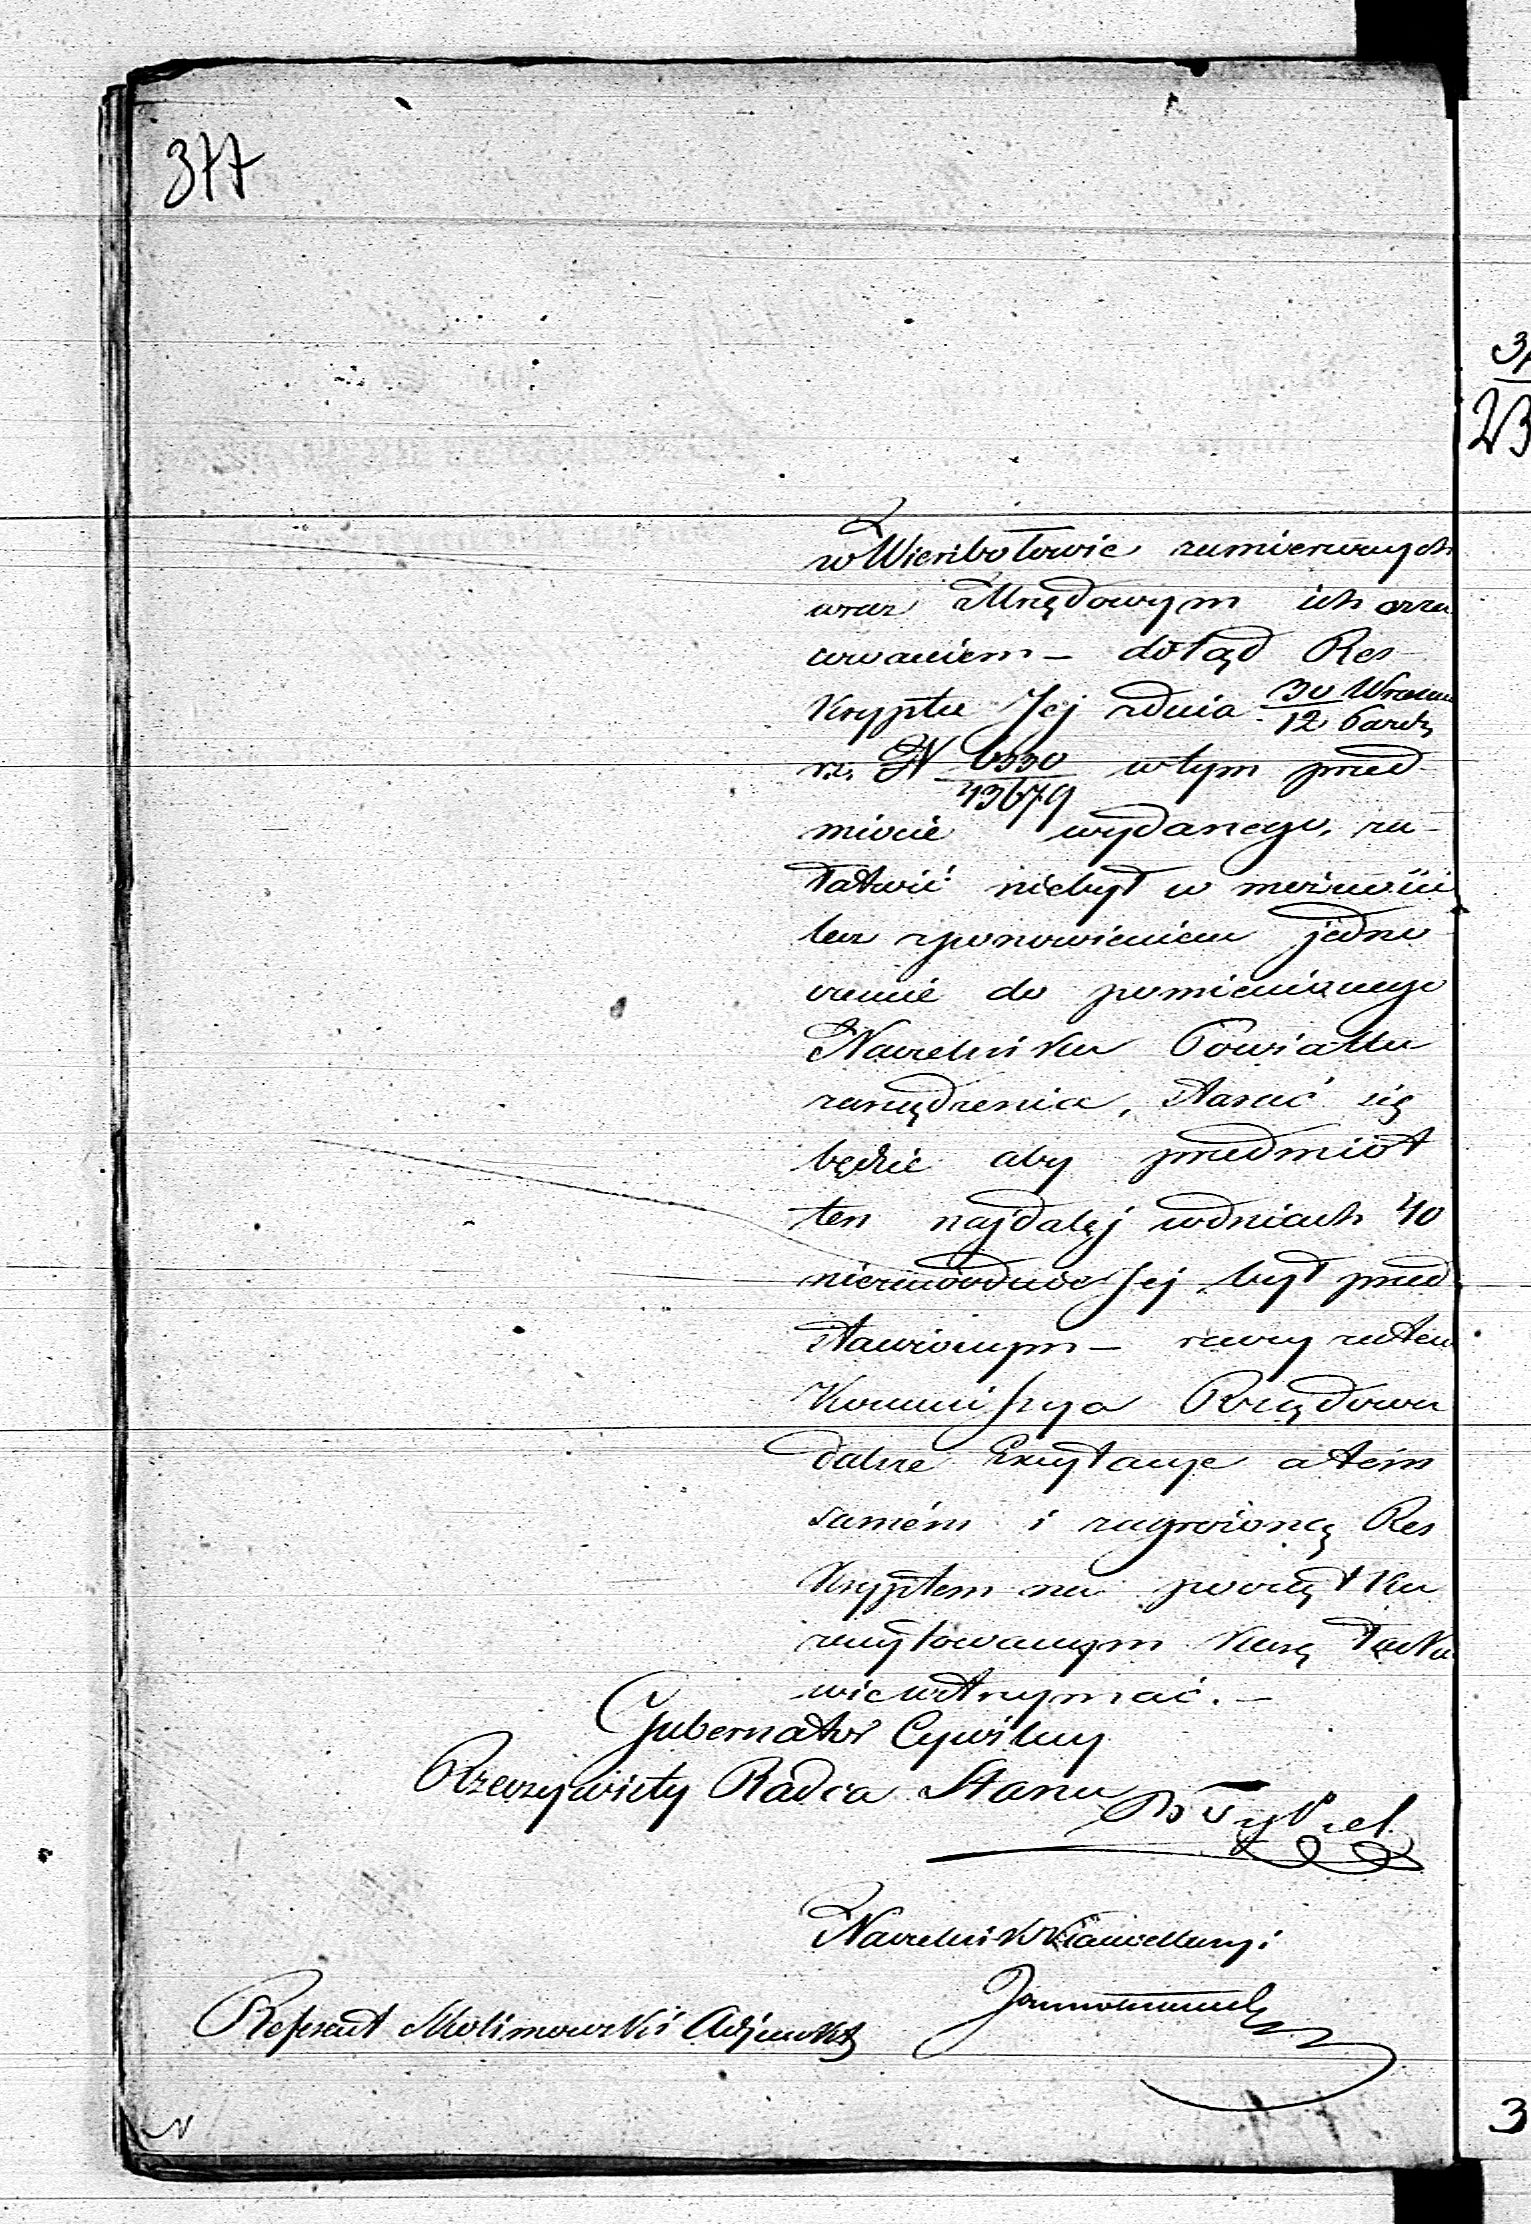 377
w Wierzbołowie zamierzonych
wraz z Urzędowym ich osza
cowaniem – dotąd Res–
kryptu Jej z dnia 30 Wrześn
12 Paźdz
rz. N 6330
43679 w tym przed–
miocie wydanego, za–
łatwić niebył w możności
lecz z ponowieniem jedno–
cześnie do pomienionego
Naczelnika Powiatu
zarządzenia, starać się
będzie aby przedmiot
ten najdalej w dniach 40
niezawodnie Jej był przed
stawionym –
Kommissya Rządowa
dalsze Excytacye a tém
samém i zagrożoną Res
kryptem na początku
zacytowanym karę łaska
wie wstrzymać. –
Gubernator Cywilny
Rzeczywisty Radca Stanu
Tykel
Naczelnik Kancellaryi
Referent Molimowski Adjunkt
3